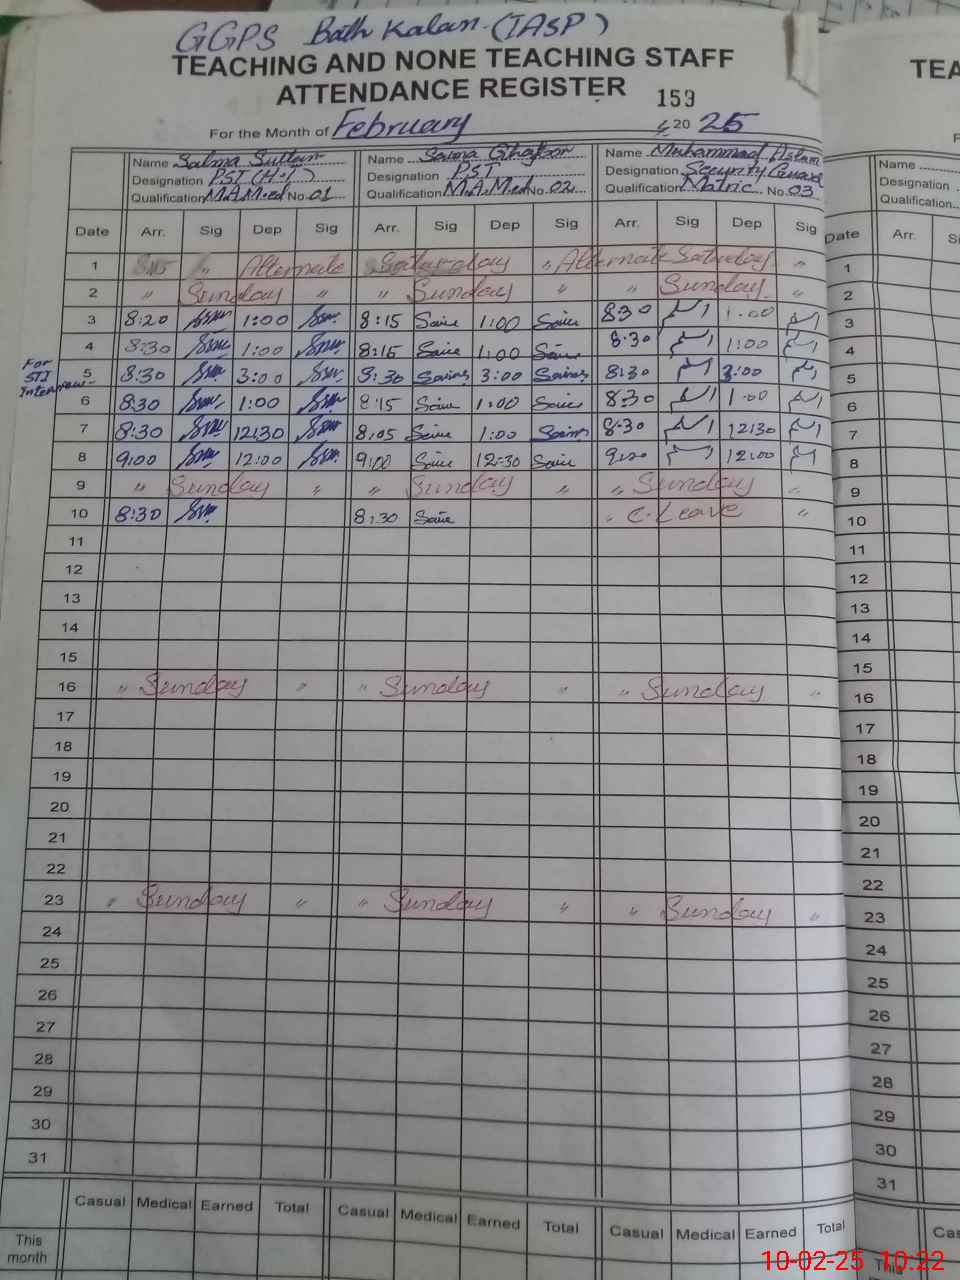 GGPS Bath Kalan (IASP)
TEACHING AND NONE TEACHING STAFF
ATTENDANCE REGISTER 159
For the Month of February 2025
Name Salma Sultan Name Saima Ghafoor Name Muhammad Aslam
Designation PST (H.T) Designation PST Designation Security Guard
Qualification M.A.M.ed No. 01 Qualification M.A.M.ed No. 02 Qualification Matric No. 03
Date Arr. Sig Dep Sig Arr. Sig Dep Sig Arr. Sig Dep Sig
1 〃 Alternate Saturday 〃 Alternate Saturday 〃
2 〃 Sunday 〃 〃 Sunday 〃 〃 Sunday 〃
3 8:20 1:00 8:15 1:00 8:30 1:00
4 8:30 1:00 8:15 1:00 8:30 1:00
For STI Interview
5 8:30 3:00 8:30 3:00 8:30 3:00
6 8:30 1:00 8:15 1:00 8:30 1:00
7 8:30 12:30 8:05 1:00 8:30 12:30
8 9:00 12:00 9:00 12:30 12:00
9 〃 Sunday 〃 〃 Sunday 〃 〃 Sunday 〃
10 8:30 8:30 〃 C.Leave 〃
11
12
13
14
15
16 〃 Sunday 〃 〃 Sunday 〃 〃 Sunday 〃
17
18
19
20
21
22
23 〃 Sunday 〃 〃 Sunday 〃 〃 Sunday 〃
24
25
26
27
28
29
30
31
Casual Medical Earned Total Casual Medical Earned Total Casual Medical Earned Total
This month
TEA
Name
Designation
Qualification
Date Arr.
1
2
3
4
5
6
7
8
9
10
11
12
13
14
15
16
17
18
19
20
21
22
23
24
25
26
27
28
29
30
31
Cas
This
10-02-25 10:22